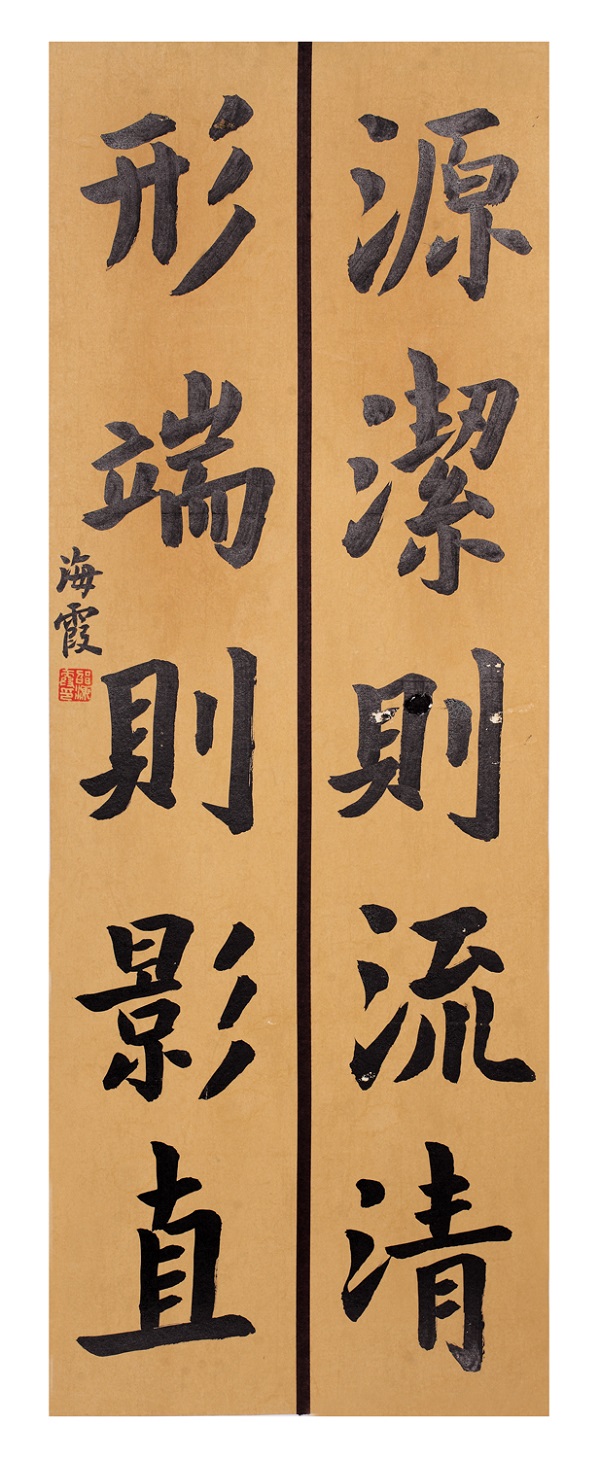 源潔則流清
形端則影直
海霞